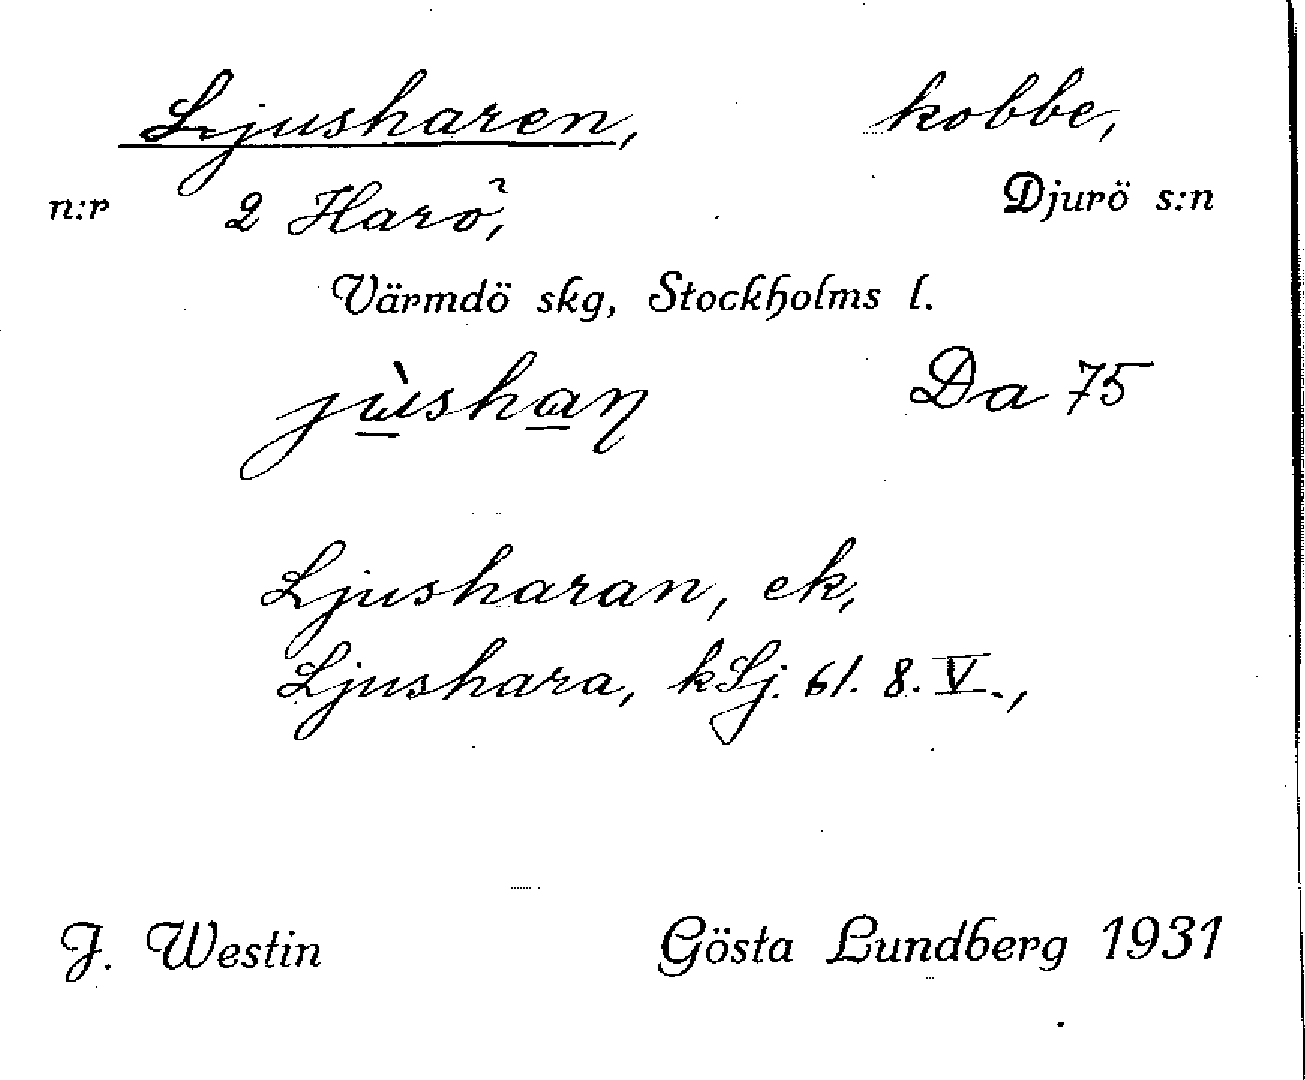 Ljusharen, kobbe,
n:r 2 Harö, Djurö s:n
Värmdö skg, Stockholms l.
jùshaƞ Da 75
Ljusharan, ek,
Ljushara, kSj. 61. 8. V.,
J. Westin Gösta Lundberg 1931